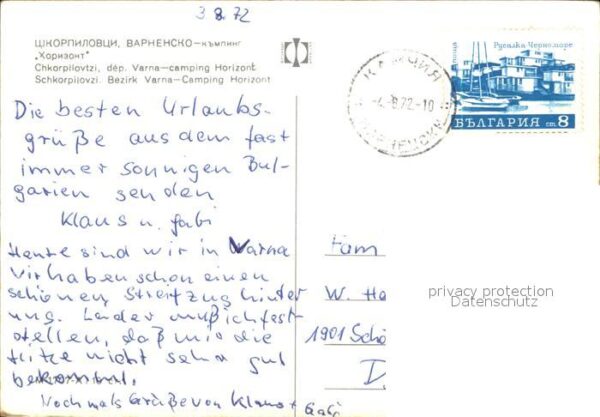 3.8.72
ШКОРПИЛОВЦИ, ВАРНЕНСКО—къмпинг
„Хоризонт“
Chkorpilovtzi, dép. Varna—camping Horizont
Schkorpilovzi. Bezirk Varna—Camping Horizont
Русалка-Черноморе
поща
БЪЛГАРИЯ ст. 8
КАМЧИЯ
-4.-8.72.-10
Die besten Urlaubs-
grüße aus dem fast
immer sonnigen Bul-
garien senden
Klaus u. Gabi
Heute sind wir in Varna
Wir haben schon einen
schönen Streifzug hinter
uns. Leider muß ich fest-
stellen, daß mir die
Hitze nicht sehr gut
bekommt.
Nochmals Grüße von Klaus + Gabi
Fam
W. Ha
1901 Schö
D
privacy protection
Datenschutz